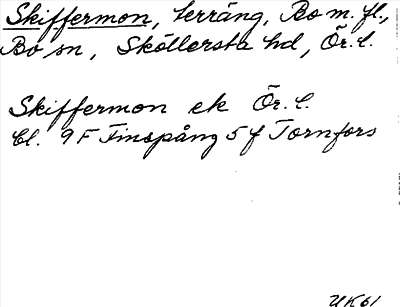 Skiffermon, terräng, Bo m. fl.,
Bo sn, Sköllersta hd, Ör. l.
Skiffermon ek Ör. l.
Bl. 9 F Finspång 5 f Tornfors
UK61